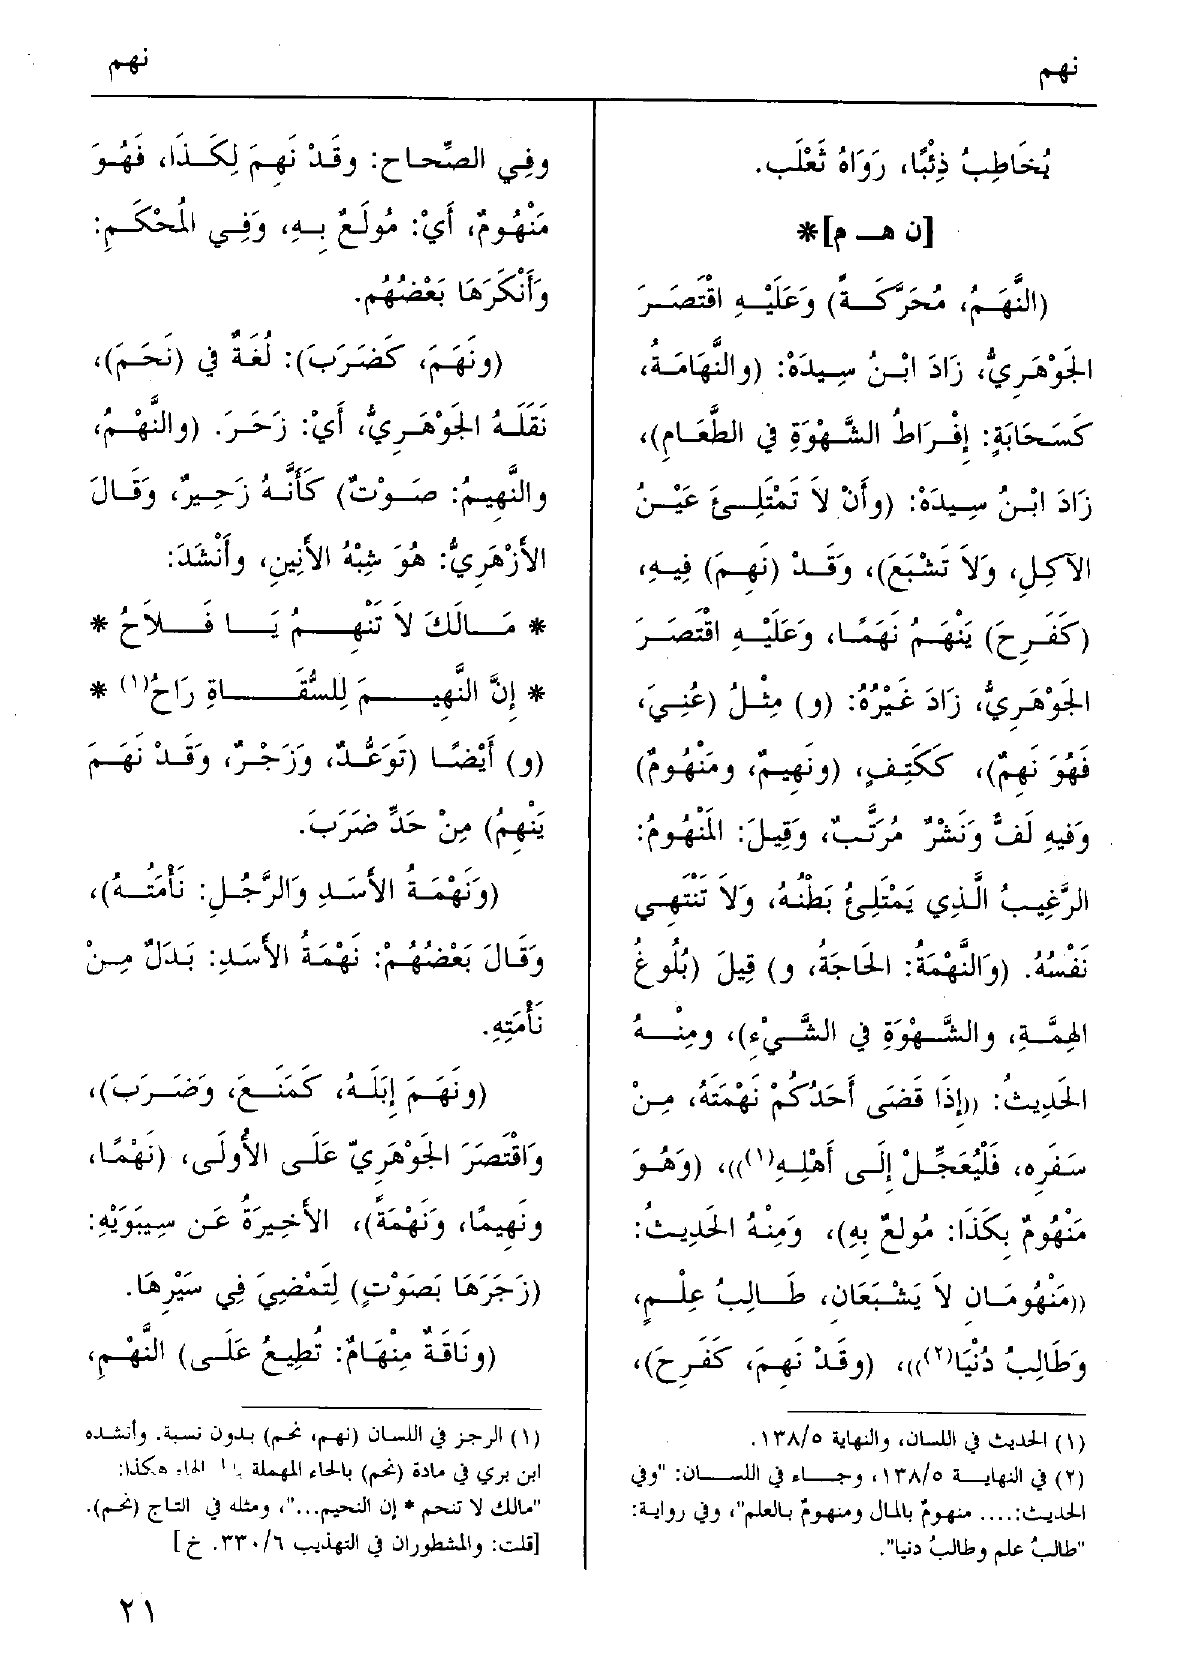 نهم
نهم
يُخَاطِبُ ذِئْبًا، رَوَاهُ ثَعْلَب.
[ن هـ م]*
(النَّهَمُ، مُحَرَّكَةً) وَعَلَيْهِ اقْتَصَرَ
الجَوْهَرِيُّ، زَادَ ابْنُ سِيدَهْ: (والنَّهَامَةُ،
كَسَحَابَةٍ: إِفْرَاطُ الشَّهْوَةِ في الطَّعَامِ)،
زَادَ ابْنُ سِيدَهْ: (وأَنْ لاَ تَمْتَلِئَ عَيْنُ
الآكِلِ، وَلاَ تَشْبَعَ)، وَقَدْ (نَهِمَ) فِيهِ،
(كَفَرِحَ) يَنْهَمُ نَهَمًا، وَعَلَيْهِ اقْتَصَرَ
الجَوْهَرِيُّ، زَادَ غَيْرُهُ: (و) مِثْلُ (عُنِيَ،
فَهُوَ نَهِمٌ)، كَكَتِفٍ، (ونَهِيمٌ، ومَنْهُومٌ)
وَفِيهِ لَفٌّ وَنَشْرٌ مُرَتَّبٌ، وَقِيلَ: المَنْهُومُ:
الرَّغِيبُ الَّذِي يَمْتَلِئُ بَطْنُهُ، وَلاَ تَنْتَهِي
نَفْسُهُ. (وَالنَّهْمَةُ: الحَاجَةُ، و) قِيلَ (بُلُوغُ
الهِمَّةِ، والشَّهْوَةِ في الشَّيْءِ)، ومِنْهُ
الحَدِيثُ: ((إِذَا قَضَى أَحَدُكُمْ نَهْمَتَهُ، مِنْ
سَفَرِه، فَلْيُعَجِّلْ إِلَى أَهْلِهِ(١)))، (وَهُوَ
مَنْهُومٌ بِكَذَا: مُولَعٌ بِهِ)، وَمِنْهُ الحَدِيثُ:
((مَنْهُومَانِ لاَ يَشْبَعَانِ، طَالِبُ عِلْمٍ،
وَطَالِبُ دُنْيَا(٢)))، (وقَدْ نَهِمَ، كَفَرِحَ)،
(١) الحديث في اللسان، والنهاية ١٣٨/٥.
(٢) في النهاية ١٣٨/٥، وجاء في اللسان: "وفي
الحديث:.... منهومٌ بالمال ومنهومٌ بالعلم"، وفي رواية:
"طالبُ علم وطالبُ دنيا".
وفِي الصِّحاح: وقَدْ نَهِمَ لِكَذَا، فَهُوَ
مَنْهُومٌ، أَيْ: مُولَعٌ بِهِ، وَفِي المُحْكَمِ:
وَأَنْكَرَهَا بَعْضُهُم.
(ونَهَمَ، كَضَرَبَ): لُغَةٌ في (نَحَمَ)،
نَقَلَهُ الجَوْهَرِيُّ، أَيْ: زَحَرَ. (والنَّهْمُ،
والنَّهِيمُ: صَوْتٌ) كَأَنَّهُ زَحِيرٌ، وَقَالَ
الأَزْهَرِيُّ: هُوَ شِبْهُ الأَنِينِ، وأَنْشَدَ:
* مَالَكَ لاَ تَنْهِمُ يَا فَلاَحُ *
* إِنَّ النَّهِيمَ لِلسُّقَاةِ رَاحُ(١) *
(و) أَيْضًا (تَوَعُّدٌ، وَزَجْرٌ، وَقَدْ نَهَمَ
يَنْهِمُ) مِنْ حَدِّ ضَرَبَ.
(وَنَهْمَةُ الأَسَدِ وَالرَّجُلِ: نَأْمَتُهُ)،
وَقَالَ بَعْضُهُمْ: نَهْمَةُ الأَسَدِ: بَدَلٌ مِنْ
نَأْمَتِهِ.
(ونَهَمَ إِبِلَهُ، كَمَنَعَ، وَضَرَبَ)،
وَاقْتَصَرَ الجَوْهَرِيّ عَلَى الأُولَى، (نَهْمًا،
ونَهِيمًا، وَنَهْمَةً)، الأَخِيرَةُ عَن سِيبَوَيْهِ:
(زَجَرَهَا بَصَوْتٍ) لِتَمْضِيَ فِي سَيْرِهَا.
(ونَاقَةٌ مِنْهَامٌ: تُطِيعُ عَلَى) النَّهْمِ،
(١) الرجز في اللسان (نهم، نحم) بدون نسبة. وأنشده
ابن بري في مادة (نحم) بالحاء المهملة الحاء هكذا:
"مالك لا تنحم * إن النحيم..."، ومثله في التاج (نحم).
[قلت: والمشطوران في التهذيب ٣٣٠/٦. خ]
٢١